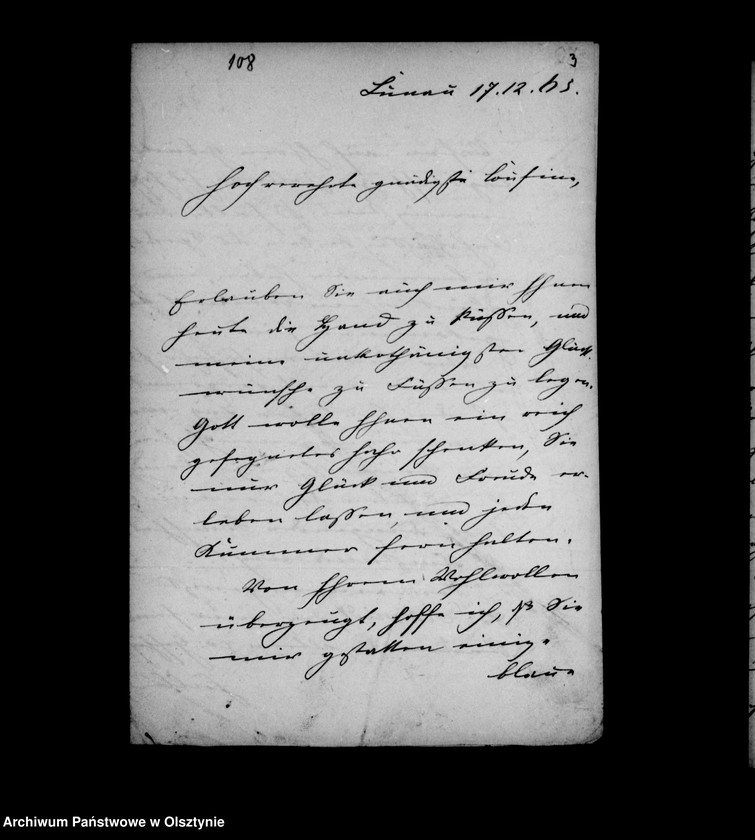 108
3
Lunau 17.12.63.
Hochverehrte gnädigste Cousine,
Erlauben Sie auch mir Ihnen
heute die Hand zu küssen, und
meine unterthänigsten Glück-
wünsche zu Füssen zu legen.
Gott wolle Ihnen ein reich
gesegnetes Jahr schenken, Sie
nur Glück und Freude er-
leben lassen, und jeden
Kummer fern halten.
Von Ihrem Wohlwollen
überzeugt, hoffe ich, ß Sie
mir gestatten einige
blaue
Archiwum Państwowe w Olsztynie